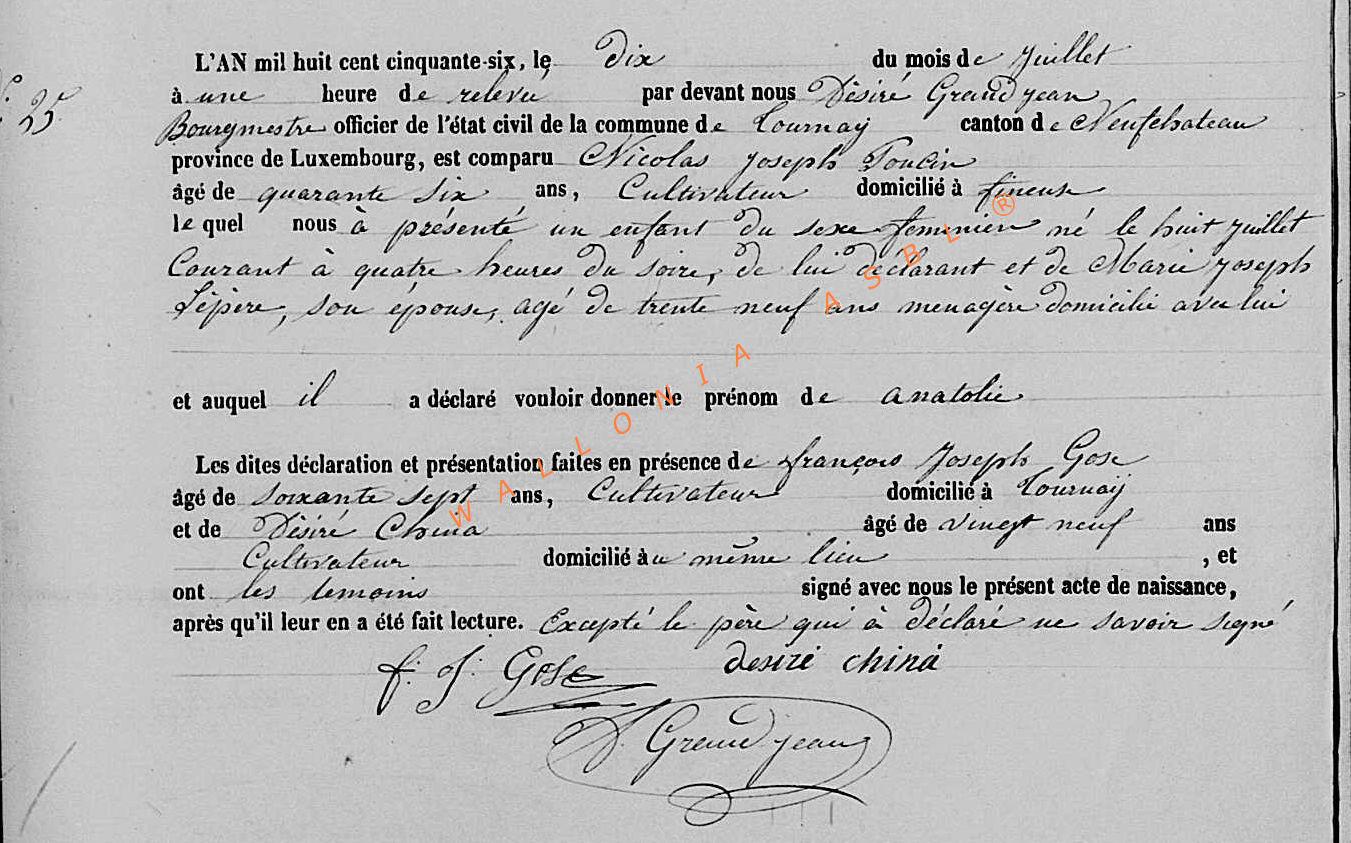 L'AN mil huit cent cinquante-six, le dix du mois de juillet
N° 25.
à une heure de relevé par devant nous Désiré Grandjean
Bourgmestre officier de l'état civil de la commune de Tournay canton de Neufchateau
province de Luxembourg, est comparu Nicolas Joseph
âgé de quarante six ans, Cultivateur domicilié à fineuse
le quel nous à présenté un enfant du sexe feminien né le huit juillet
Courant à quatre heures du soire, de lui déclarant et de Marie Joseph
Lépère, son épouse, agé de trente neuf ans menagère domicilié avec lui
et auquel il a déclaré vouloir donner le prénom de anatolie
Les dites déclaration et présentation faites en présence de françois Joseph Gose
âgé de soixante sept ans, Cultivateur domicilié à Tournay
et de Désiré China âgé de vingt neuf ans
Cultivateur domicilié àu même lieu , et
ont les temoins signé avec nous le présent acte de naissance,
après qu'il leur en a été fait lecture. Excepté le père qui à déclaré ne savoir signé
f. J. Gose desiré china
D. Grandjean
WALLONIA ASBL ®